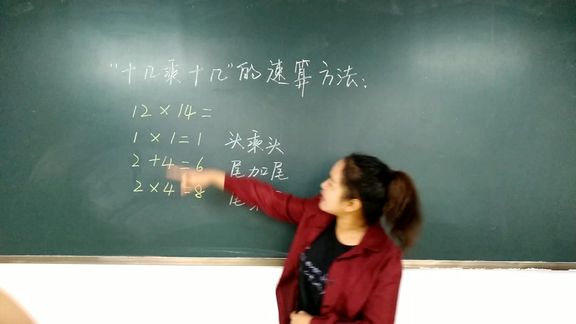 "十几乘十几"的速算方法:
12×14=
1×1=1 头乘头
2+4=6 尾加尾
2×4=8 尾